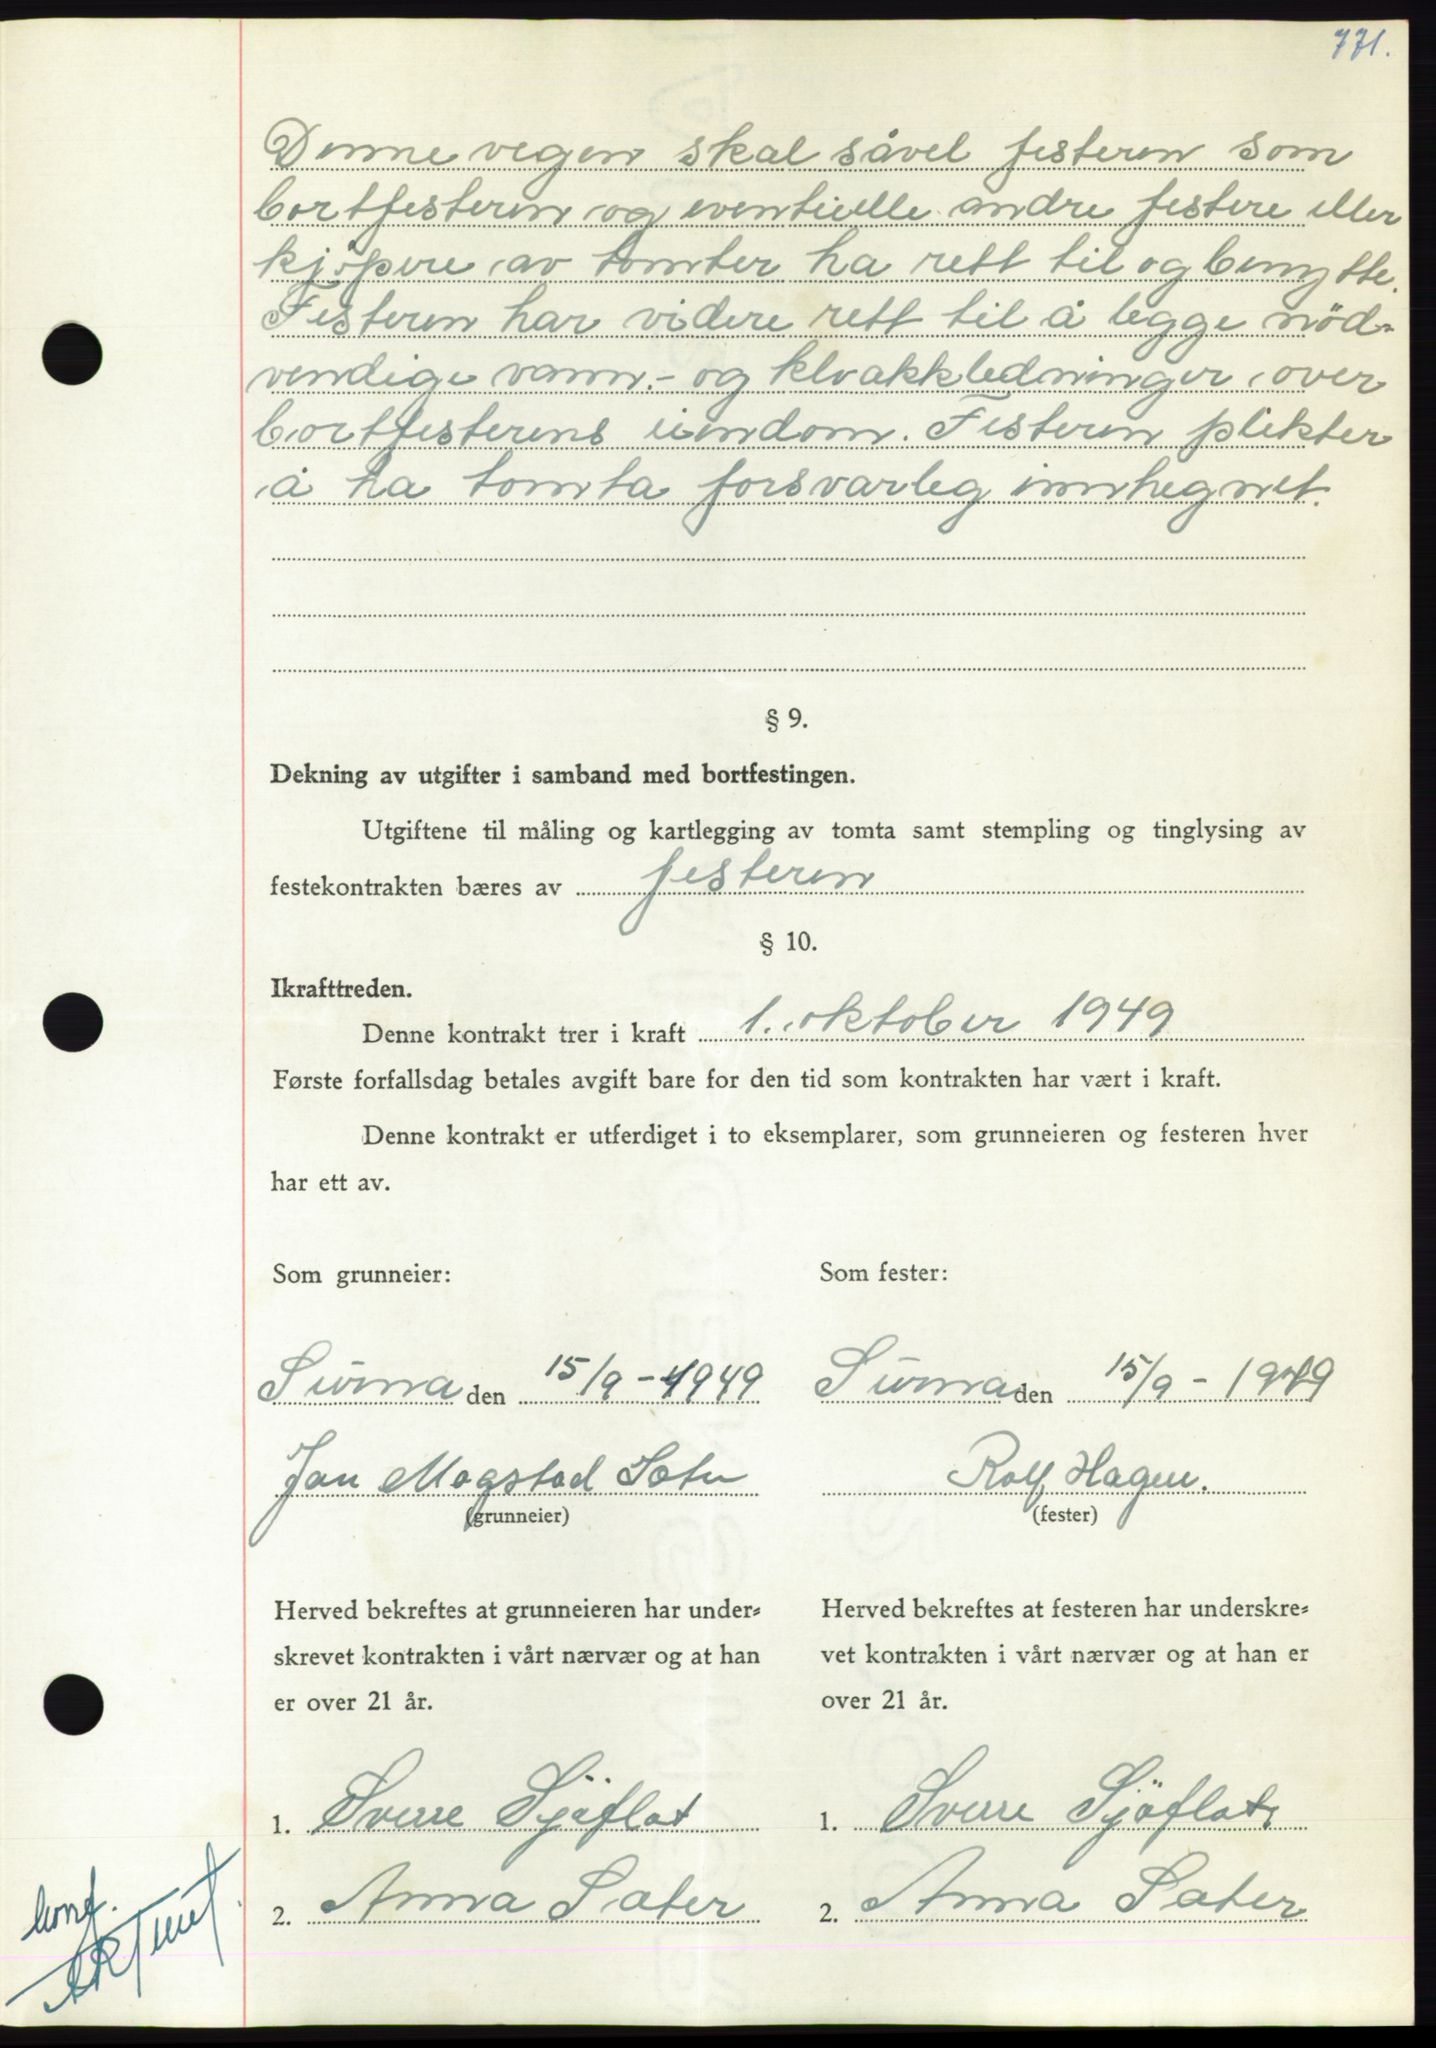 771.
Denne vegen skal såvel festeren som
bortfesteren og eventuelle andre festere eller
kjöpere av tomter ha rett til og benytte.
Festeren har videre rett til å legge nöd-
vendige vann- og kloakkledninger over
bortfesterens eiendom. Festeren plikter
å ha tomta forsvarleg innhegnet.
§ 9.
Dekning av utgifter i samband med bortfestingen.
Utgiftene til måling og kartlegging av tomta samt stempling og tinglysing av
festekontrakten bæres av festeren
§ 10.
Ikrafttreden.
Denne kontrakt trer i kraft 1. oktober 1949
Første forfallsdag betales avgift bare for den tid som kontrakten har vært i kraft.
Denne kontrakt er utferdiget i to eksemplarer, som grunneieren og festeren hver
har ett av.
Som grunneier: Som fester:
Surna den 15/9-1949 Surna den 15/9-1949
Jan Mogstad Sæter Rolf Hagen.
(grunneier) (fester)
Herved bekreftes at grunneieren har under-
skrevet kontrakten i vårt nærvær og at han
er over 21 år.
Herved bekreftes at festeren har underskre-
vet kontrakten i vårt nærvær og at han er
over 21 år.
1. Sverre Sjöflot 1. Sverre Sjöflot
2. Anna Sæter 2. Anna Sæter
konf.